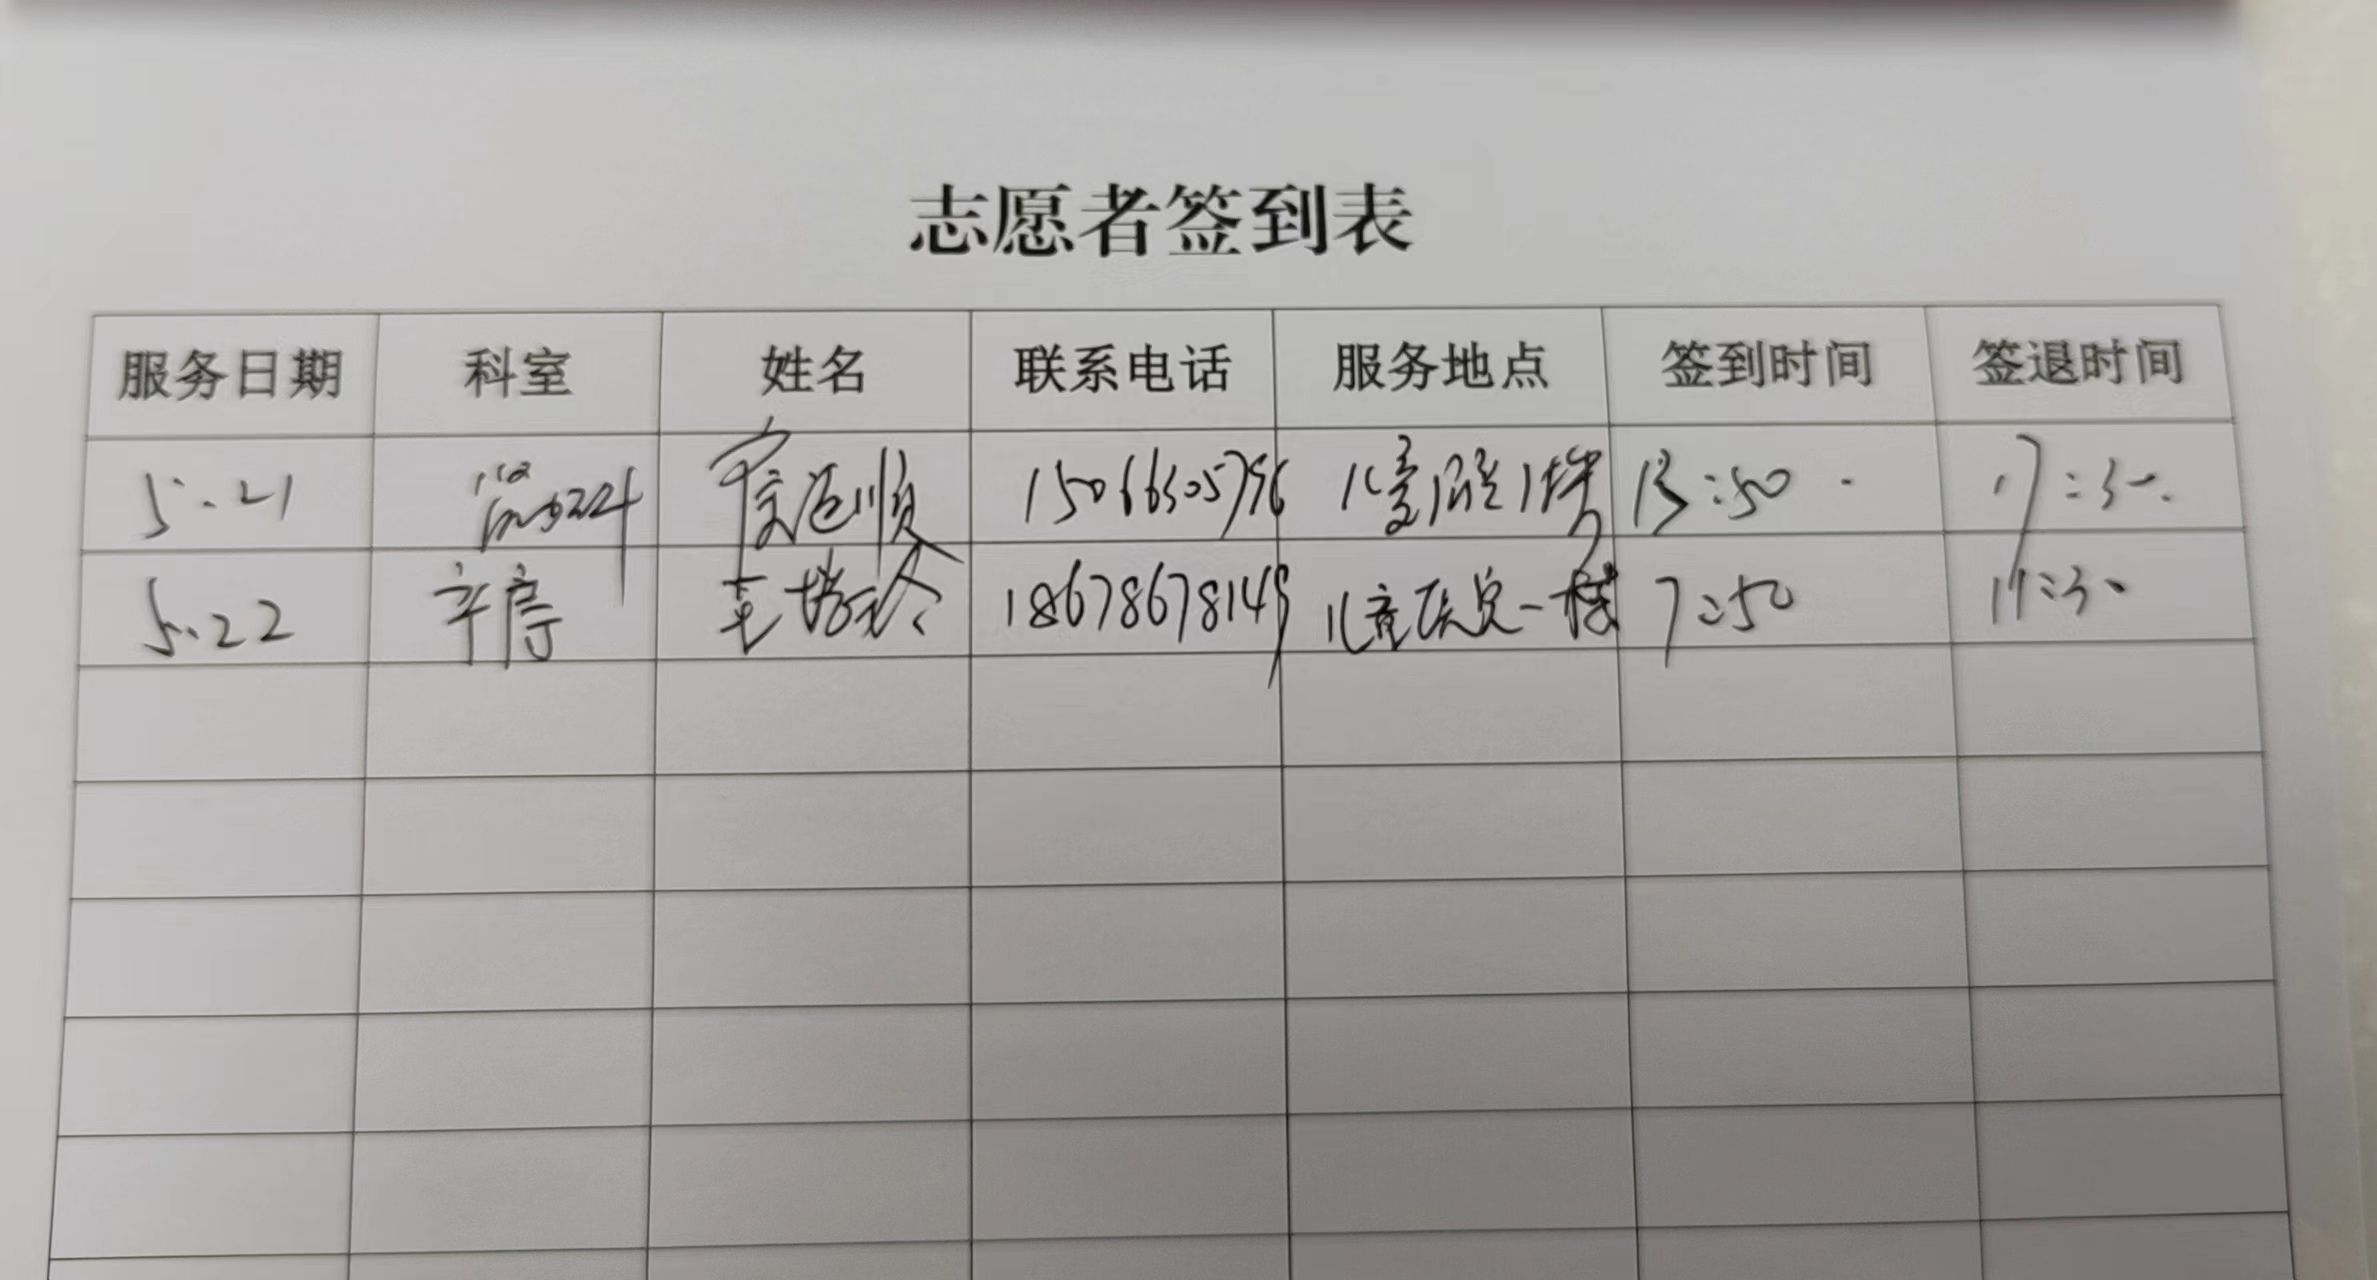 志愿者签到表
服务日期 科室 姓名 联系电话 服务地点 签到时间 签退时间
5.21 15066305796 儿童医院1楼 13:50 17:30
5.22 18678678149 儿童医院一楼 7:50 11:30